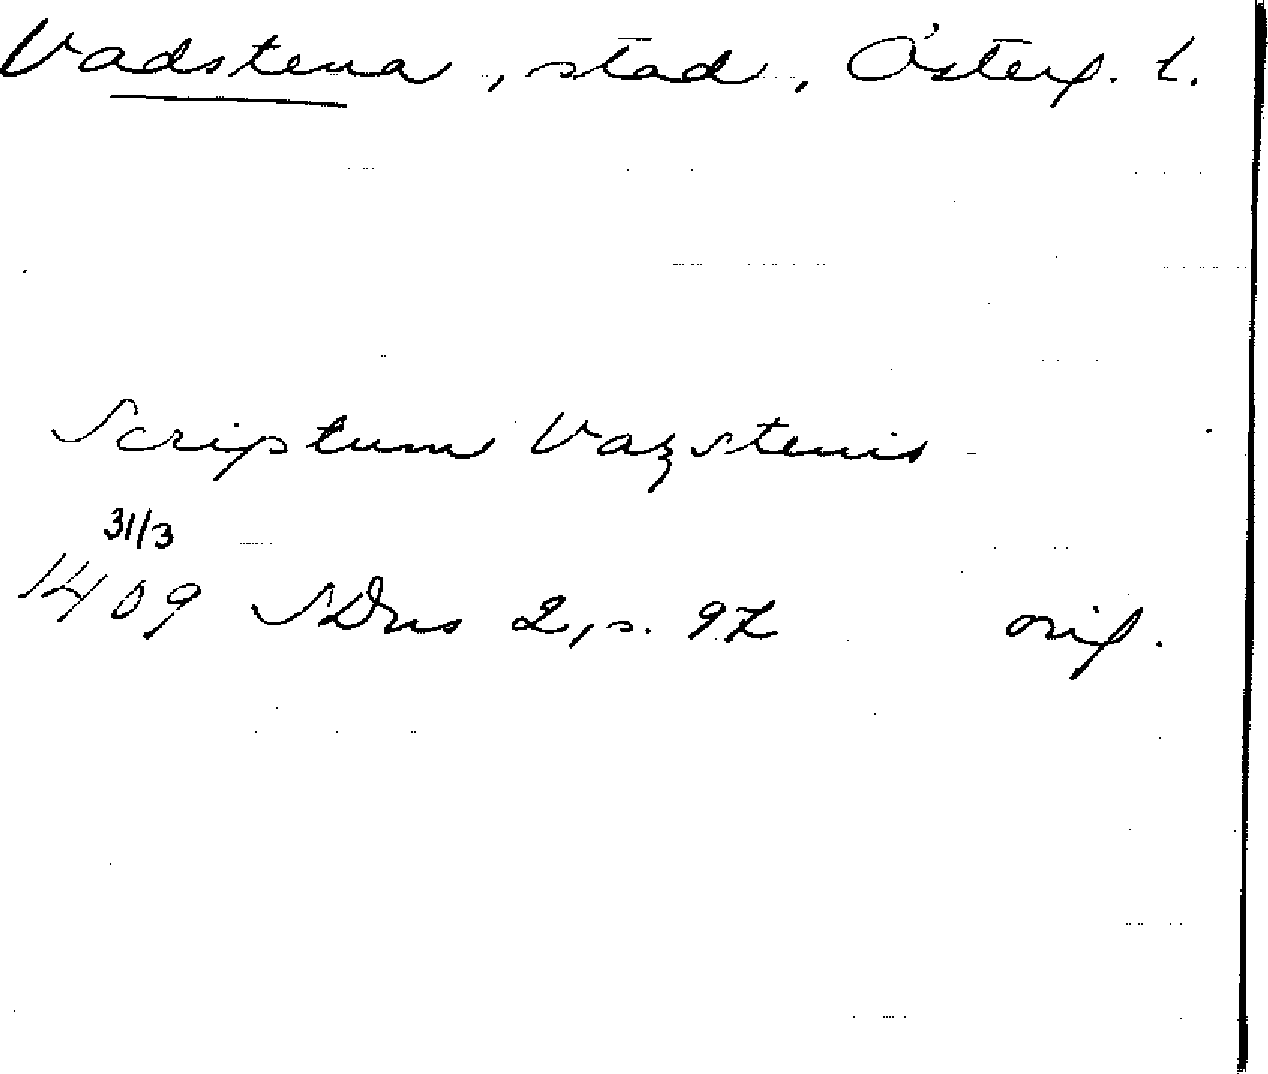 Vadstena, stad, Österg. l.
Scriptum Vazstenis
31/3
1409 SDns 2, s. 97 orig.